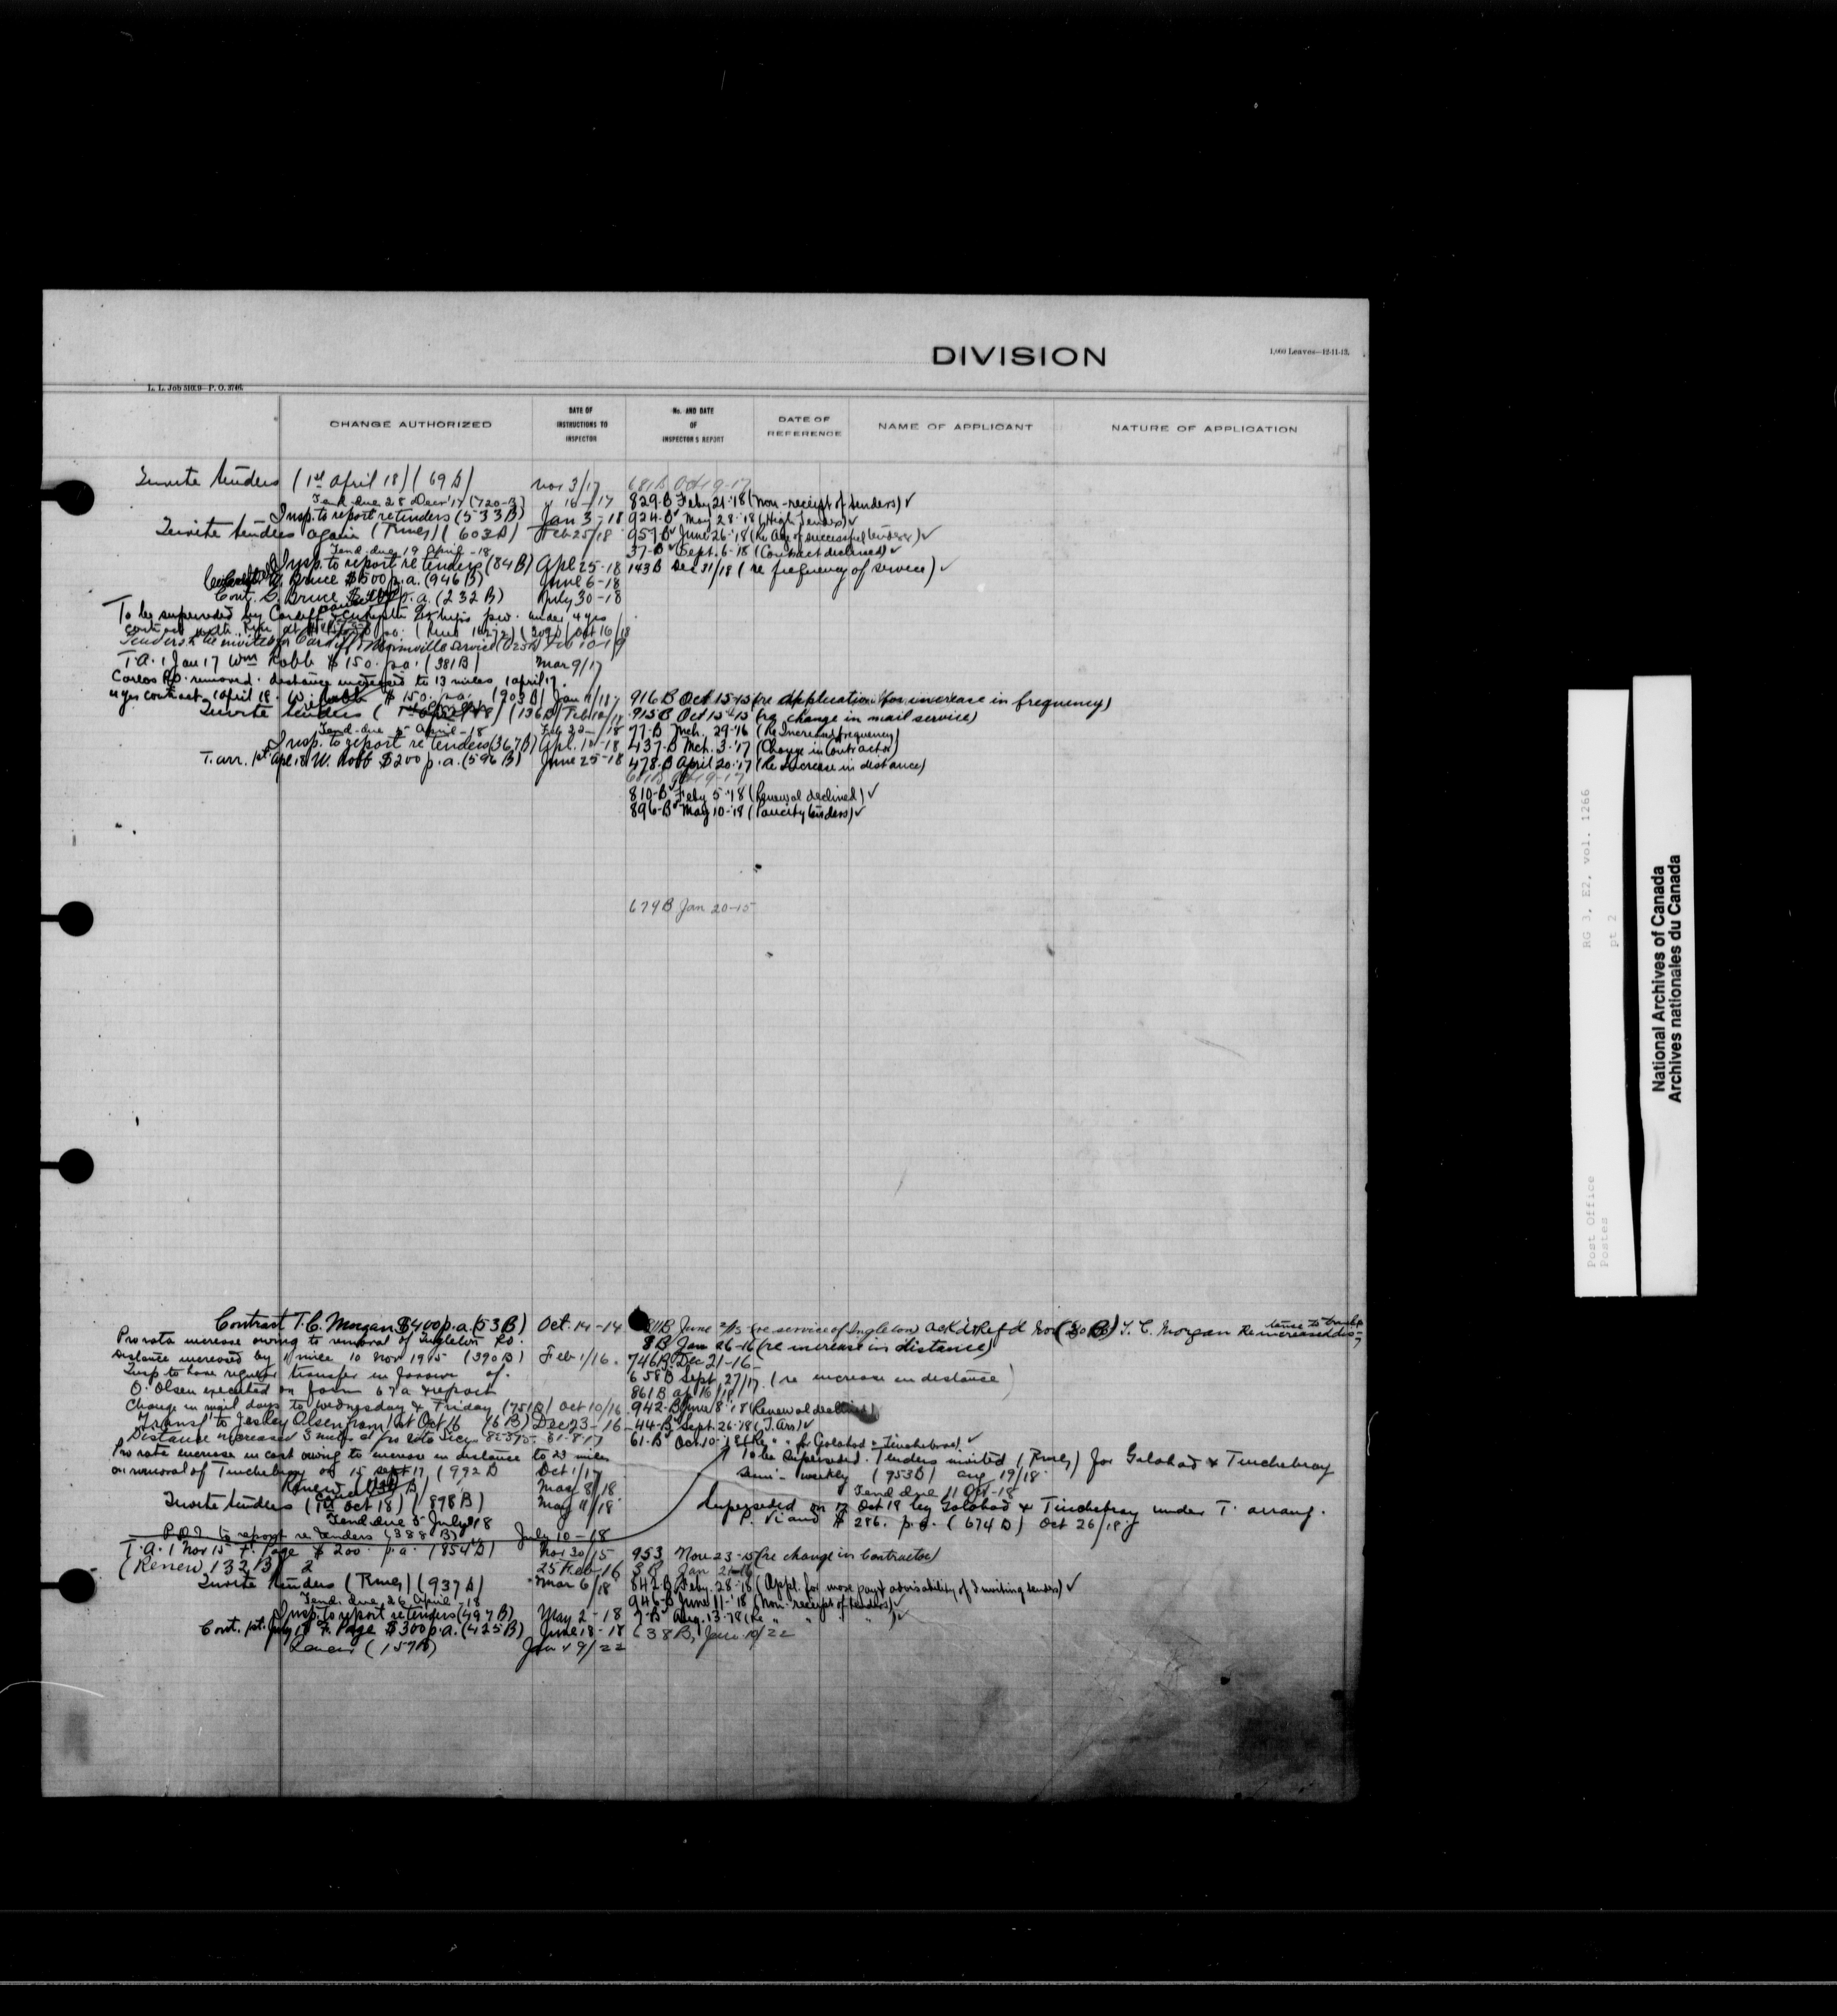 DIVISION
1,000 Leaves—12-11-13.
L. L. Job 51039—P. O. 3706.
CHANGE AUTHORIZED
DATE OF INSTRUCTIONS TO INSPECTOR
No. AND DATE OF INSPECTOR'S REPORT
DATE OF REFERENCE
NAME OF APPLICANT
NATURE OF APPLICATION
Invite tenders (1st April 18) (69 B) Nov 3/17 681B Oct 19-17
Tend. due 28 Decr '17 (720-B) 16/17 829-B Feby 21-'18 (Non-receipt of tenders) ✓
Insp. to report re tenders (533B) Jan 3-18 924-B May 28-'18 (High Tenders) ✓
Invite tenders again (Rmcs) (602B) Feb 25/18 957-B June 26-'18 (Re Age of successful tenderer) ✓
Tend. due 19 April -18 37-B Sept. 6-18 (Contract declined) ✓
Insp. to report re tenders (84B) Apl 25-18 143B Dec 31/18 (re frequency of service) ✓
Bruce $500 p.a. (946B) June 6-18
Cont. G. Bruce p.a. (232B) July 30-18
To be superseded by Cardiff p.w. under 4 yrs
contract with Oct 16/18
Tenders to be invited for Cardiff Morinville service Feb 10-19
T.A. 1 Jan 17 Wm Robb $150. p.a. (381B) Mar 9/17
Carlos P.O. removed. distance increased to 13 miles 1 April 17.
4 yrs contract 1 April 18. W. Robb $150. p.a. (903B) Jan 11/18 916 B Oct 15-15 (re application for increase in frequency)
Invite tenders (136B) Feb 18 915 B Oct 15-15 (re change in mail service)
Tend. due 5 April -18 77-B Mch. 29-16 (Re Increased frequency)
Insp. to report re tenders (367B) Apl. 18 437-B Mch. 3-'17 (Change in Contractor)
T. arr. 1st Apl. 18 W. Robb $200 p.a. (596B) June 25-18 478-B April 20-'17 (Re increase in distance)
681B Oct 19-17
810-B Feby 5-'18 (Renewal declined) ✓
896-B May 10-'18 (Paucity tenders) ✓
679B Jan 20-15
Contract T. C. Morgan $400 p.a. (53B) Oct. 14-14 811B June 2/15 (re service of Ingleton) ack'd & ref'd T. C. Morgan Re increased dis-
Pro rata increase owing to removal of Ingleton P.O. 8 B Jan 26-16 (re increase in distance)
Distance increased by 1 mile 10 Nov 1915 (390B) Feb 1/16. 746B. Dec 21-16-
Insp to have regular transfer in favour of. 658B Sept 27/17. (re increase in distance)
O. Olsen executed on form 67a & report 861B ap 16/18
Change in mail days to Wednesday & Friday (751B) Oct 10/16 942-B June 8-'18 (Renewal declined)
Transf. to Jesley Olsen from 1st Oct 16 (6B) Dec 23-16 44-B Sept. 26-'18 (T. Arr.) ✓
Distance increased 3 miles at pro rata 31-8-17 61-B Oct 10-18 (Re " " for Galahad & Tinchebray) ✓
Pro rata increase in cost owing to increase in distance to 23 miles To be superseded. Tenders invited (Rmcs) for Galahad & Tinchebray
on removal of Tinchebray on 15 Sept 17 (992B Oct 1/17 semi-weekly (953B) Aug 19/18
Renew Mar 8/18 Tend due 11 Oct-18
Invite tenders (1st Oct 18) (898B) May 11/18 Superseded on 17 Oct 18 by Galahad & Tinchebray under T. arrang.
Tend due 5 July 18 P. Viand $286. p.a. (674B) Oct 26/18
P.O.I. to report re tenders (388B) July 10-18
T.A. 1 Nov 15 F. Page $200. p.a. (854B) Nov 30/15 953 Nov 23-15 (re change in Contractor)
(Renew 132B) 25 Feb-16 3 B Jan 21-16
Invite tenders (Rmcs) (937B) Mar 6/18 842-B Feby. 28-'18 (Appl. for more pay & advisability of inviting tenders) ✓
Tend. due 26 April -18 946-B June 11-'18 (Non-receipt of tenders) ✓
Insp. to report re tenders (497B) May 2-18 7-B Aug. 13-'18 (Re " " " ") ✓
Cont. 1st July 18 F. Page $300 p.a. (425B) June 18-18 638B, Jan. 10/22
Renew (157B) Jan 9/22
RG 3, E2, vol. 1266
pt 2
Post Office
Postes
National Archives of Canada
Archives nationales du Canada